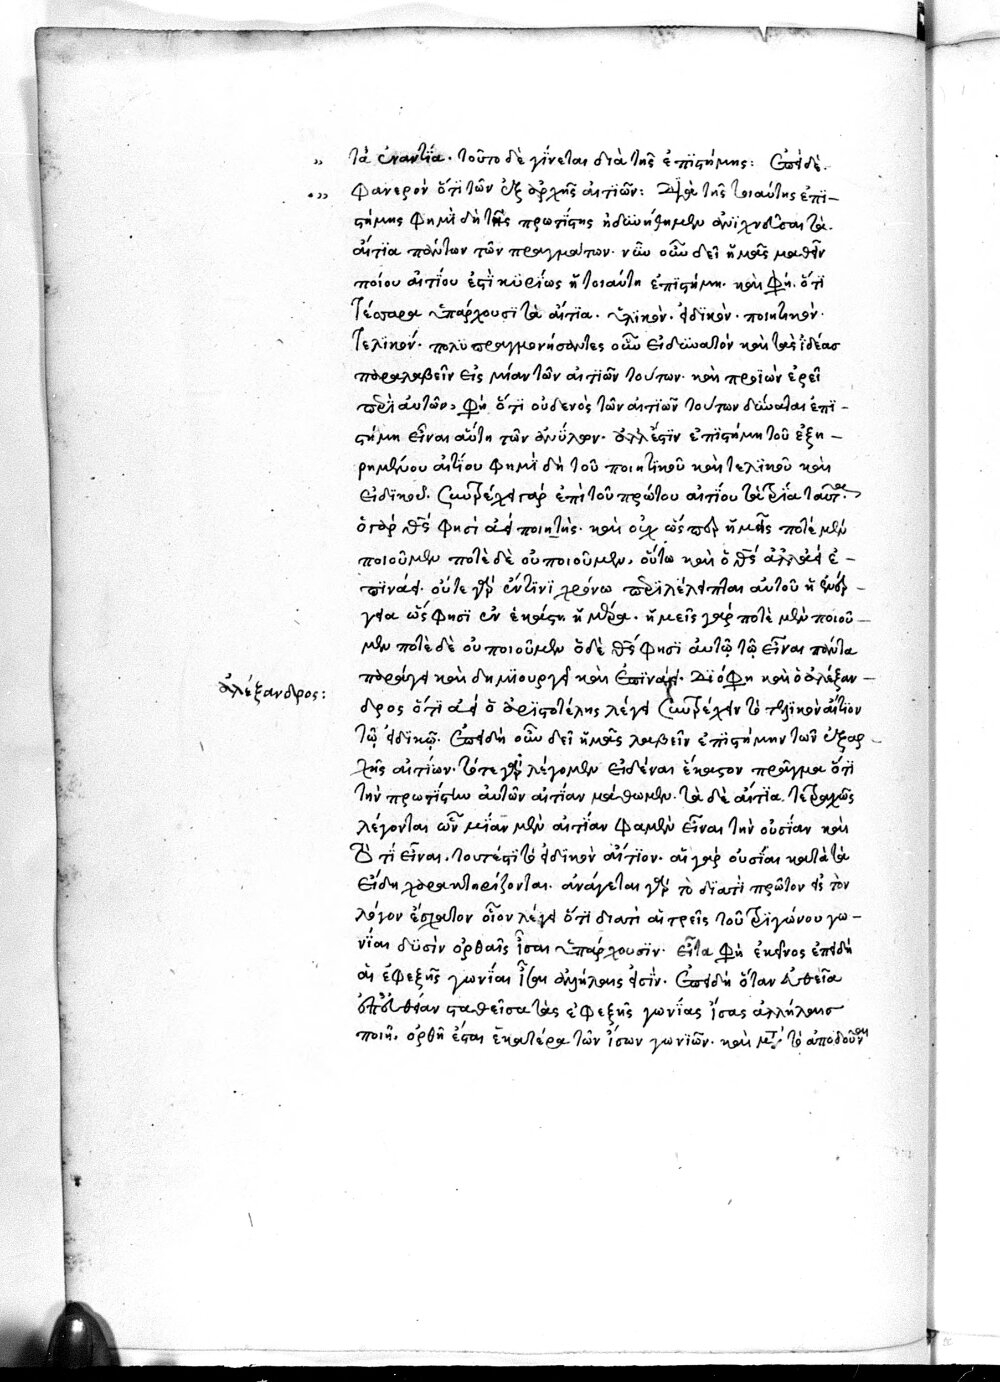 τὰ ἐναντία. τοῦτο δὲ γίνεται διὰ τῆς ἐπιστήμης: Ἐπεὶ δὲ
φανερὸν ὅτι τῶν ἐξ ἀρχῆς αἰτιῶν: Διὰ τῆς τοιαύτης ἐπι-
στήμης φημὶ δὴ τῆς πρωτίστης ἠδυνήθημεν ἀνιχνεῦσαι τὰ
αἴτια πάντων τῶν πραγμάτων. νῦν οὖν δεῖ ἡμᾶς μαθεῖν
ποίου αἰτίου ἐστὶ κυρίως ἡ τοιαύτη ἐπιστήμη. καὶ φη. ὅτι
τέσσαρα ὑπάρχουσι τὰ αἴτια. ὑλικὸν. εἰδικὸν. ποιητικὸν.
τελικόν. πολυπραγμονήσαντες οὖν εἰ δυνατὸν καὶ τὰς ἰδέας
παραλαβεῖν εἰς μίαν τῶν αἰτιῶν τούτων. καὶ προϊὼν ἐρεῖ
περὶ αὐτῶν, φη ὅτι οὐδενὸς τῶν αἰτιῶν τούτων δύναται ἐπι-
στήμη εἶναι αὕτη τῶν ἀνύλων. ἀλλ' ἔστιν ἐπιστήμη τοῦ ἐξῃ-
ρημένου αἰτίου φημὶ δὴ τοῦ ποιητικοῦ καὶ τελικοῦ καὶ
εἰδικοῦ. συντρέχει γὰρ ἐπὶ τοῦ πρώτου αἰτίου τὰ τρία ταῦτα.
ὁ γὰρ θς φησὶ ἀεὶ ποιητὴς. καὶ οὐχ ὥσπερ ἡμεῖς ποτὲ μὲν
ποιοῦμεν ποτὲ δὲ οὐ ποιοῦμεν, οὕτω καὶ ὁ θς ἀλλ' ἀεὶ ἐ-
πινάει. οὔτε γὰρ ἔν τινι χρόνω περιλέλειπται αὐτοῦ ἡ ἐνέρ-
γεια ὥς φησι ἐν ἑκάστη ἡμέρα. ἡμεῖς γάρ ποτὲ μὲν ποιοῦ-
μεν ποτὲ δὲ οὐ ποιοῦμεν ὁ δὲ θς φησι αὐτῷ τῷ εἶναι πάντα
παράγει καὶ δημιουργεῖ καὶ ἐπινάει. Διό φη καὶ ὁ ἀλέξαν-
ἀλέξανδρος:
δρος ὅτι ἀεὶ ὁ ἀριστοτέλης λέγει συντρέχειν τὸ τελικὸν αἴτιον
τῷ εἰδικῷ. Ἐπειδὴ οὖν δεῖ ἡμᾶς λαβεῖν ἐπιστήμην τῶν ἐξαρ-
χῆς αἰτίων. τότε γὰρ λέγομεν εἰδέναι ἕκαστον πρᾶγμα ὅτι
τὴν πρωτίστην αὐτῶν αἰτίαν μάθωμεν. τὰ δὲ αἴτια. τετραχῶς
λέγονται ὧν μίαν μὲν αἰτίαν φαμὲν εἶναι τὴν οὐσίαν καὶ
τὸ τί εἶναι. τουτέστι τὸ εἰδικὸν αἴτιον. αἱ γὰρ οὐσίαι κατὰ τὰ
εἴδη χαρακτηρίζονται. ἀνάγεται γὰρ τὸ διατὶ πρῶτον εἰς τὸν
λόγον ἔσχατον οἷον λέγει ὅτι διατὶ αἱ τρεῖς τοῦ τριγώνου γω-
νίαι δυσὶν ὀρθαῖς ἴσαι ὑπάρχουσιν. εἶτα φη ἐκεῖνος ἐπειδὴ
αἱ ἐφεξῆς γωνίαι ἴσαι ἀλλήλαις εἰσίν. Ἐπειδὴ ὅταν εὐθεῖα
ἐπ' εὐθεῖαν σταθεῖσα τὰς ἐφεξῆς γωνίας ἴσας ἀλλήλαις
ποιῆ, ὀρθὴ ἔσται ἑκατέρα τῶν ἴσων γωνιῶν. καὶ μετὰ τὸ ἀποδοῦναι